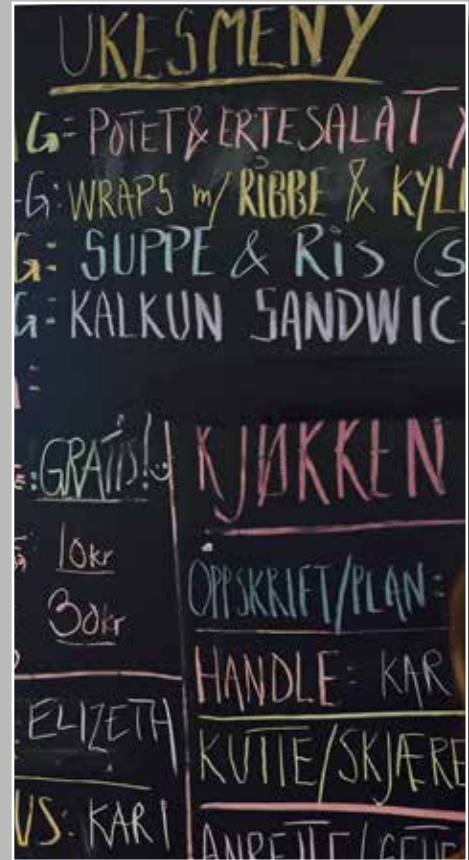 UKESMENY
G: POTET & ERTESALAT
G: WRAPS m/ RIBBE & KYLL
G: SUPPE & RIS (S
G: KALKUN SANDWIC
: GRATIS!
10kr
30kr
ELIZETH
US: KARI
KJØKKEN
OPPSKRIFT/PLAN:
HANDLE: KAR
KUTTE/SKJÆRE